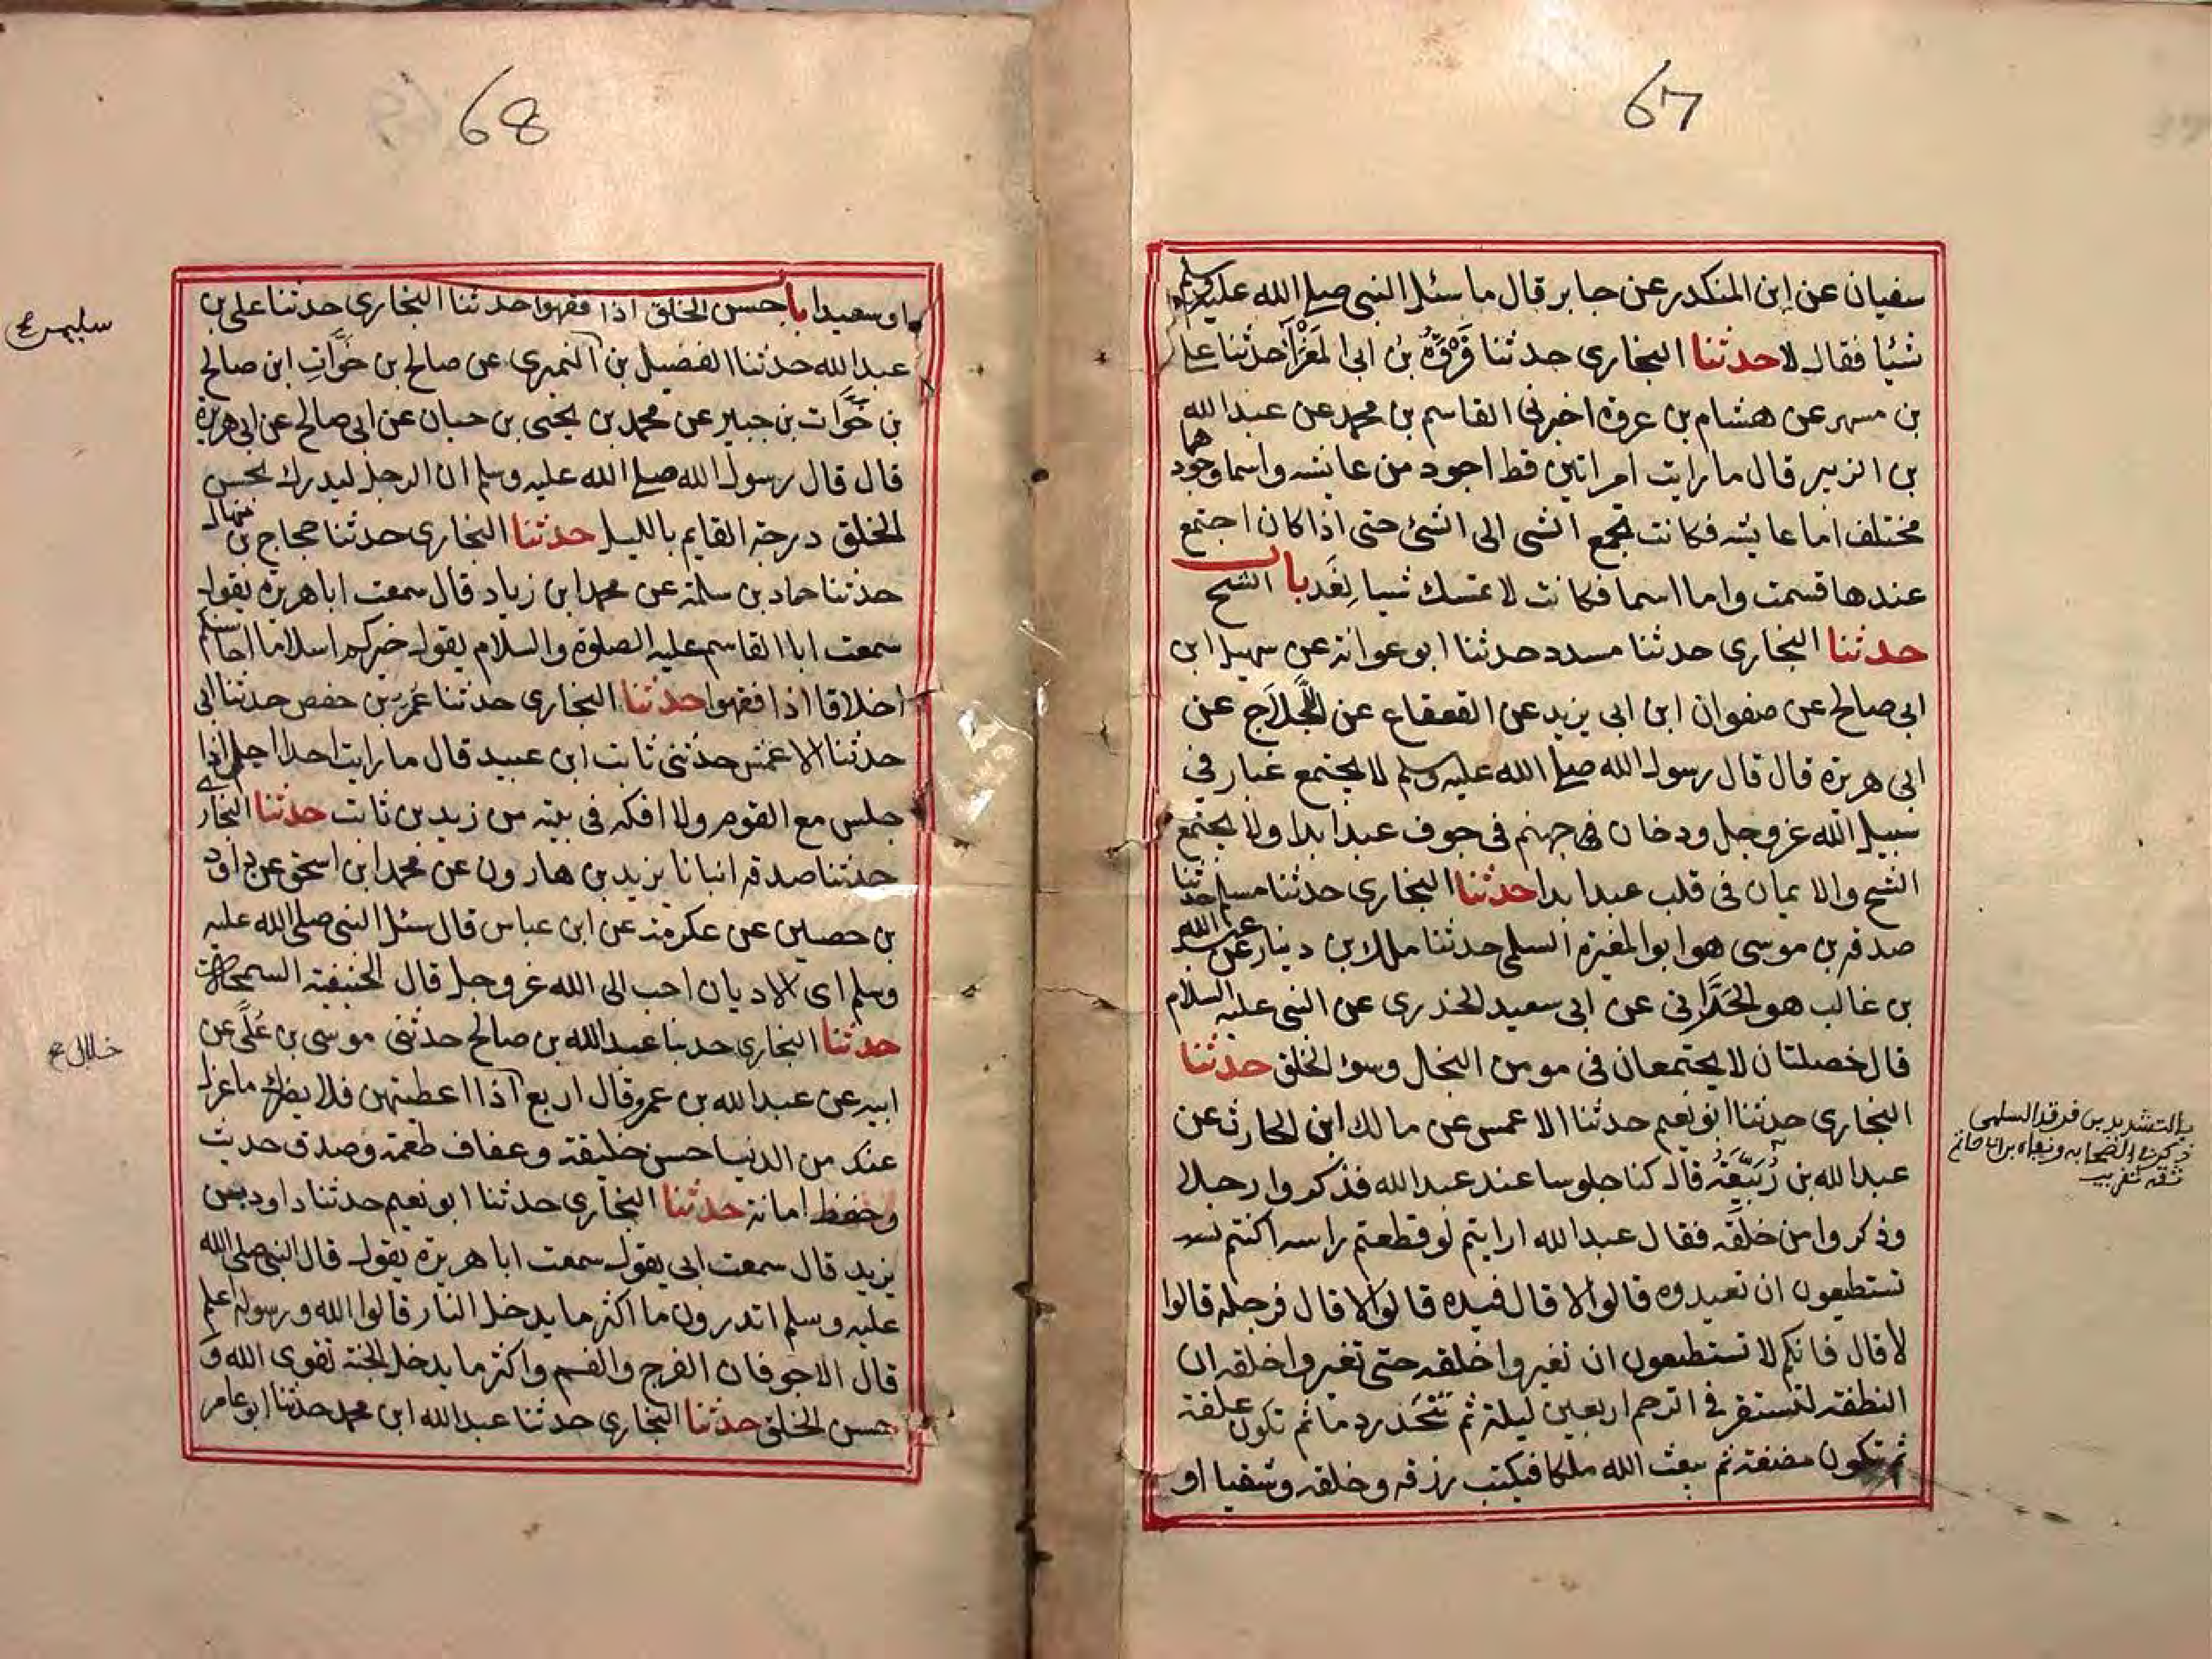 67
سفيان عن ابن المنكدر عن جابر قال ما سئل النبي صلى الله عليه وسلم
شيئا فقال لا حدثنا البخاري حدثنا فروة بن ابي المغرا حدثنا علي
بن مسهر عن هشام بن عروة اخبرني القاسم بن محمد عن عبد الله
بن الزبير قال ما رايت امراتين قط اجود من عايشه واسما وجودهما
مختلف اما عايشه فكانت تجمع الشي الى الشئ حتى اذا كان اجتمع
عندها قسمت واما اسما فكانت لا تمسك شيا لغد باب الشح
حدثنا البخاري حدثنا مسدد حدثنا ابو عوانة عن سهيل ابن
ابي صالح عن صفوان ابن ابي يزيد عن القعقاع عن اللجلاج عن
ابي هريرة قال قال رسول الله صلى الله عليه وسلم لا يجتمع غبار في
سبيل الله عز وجل ودخان في جهنم في جوف عبد ابدا ولا يجتمع
الشح والايمان في قلب عبد ابدا حدثنا البخاري حدثنا مسلم حدثنا
صدقه بن موسى هو ابو المغيرة السلمي حدثنا ملك بن دينار عن عبد الله
بن غالب هو الحداني عن ابي سعيد الخدري عن النبي عليه السلام
قال خصلتان لا يجتمعان في مومن البخل وسوء الخلق حدثنا
البخاري حدثنا ابو نعيم حدثنا الاعمس عن مالك ابن الحارث عن
عبد الله بن ربيعة قال كنا جلوسا عند عبد الله فذكروا رجلا
وذكروا من خلقه فقال عبد الله ارايتم لو قطعتم راسه اكنتم
تستطيعون ان تعيدوه قالوا لا قال فيده قالوا لا قال فرجله قالوا
لا قال فانكم لا تستطيعون ان تغيروا خلقه حتى تغيروا خلقه ان
النطفة لتستقر في الرحم اربعين ليلة ثم تتحدر دما ثم تكون علقة
ثم تكون مضغة ثم يبعث الله ملكا فيكتب رزقه وخلقه وشقيا او
بالتشديد بن فرقد السلمي
68
او سعيدا باب حسن الخلق اذا فقهوا حدثنا البخاري حدثنا علي بن
عبد الله حدثنا الفضيل بن النميري عن صالح بن خوات ابن صالح
بن خوات بن جبير عن محمد بن يحيى بن حبان عن ابي صالح عن ابي هريرة
قال قال رسول الله صلى الله عليه وسلم ان الرجل ليدرك بحسن
الخلق درجة القايم بالليل حدثنا البخاري حدثنا حجاج بن منهال
حدثنا حماد بن سلمة عن محمد ابن زياد قال سمعت ابا هريرة يقول
سمعت ابا القاسم عليه الصلوة والسلام يقول خيركم اسلاما احاسنكم
اخلاقا اذا فقهوا حدثنا البخاري حدثنا عمر بن حفص حدثنا ابي
حدثنا الاعمش حدثني ثابت ابن عبيد قال ما رايت احدا اجل اذا
جلس مع القوم ولا افكه في بيته من زيد بن ثابت حدثنا البخاري
حدثنا صدقه انبانا يزيد بن هارون عن محمد ابن اسحق عن داود
بن حصين عن عكرمة عن ابن عباس قال سئل النبي صلى الله عليه
وسلم اي الاديان احب الى الله عز وجل قال الحنيفية السمحة
حدثنا البخاري حدثنا عبد الله بن صالح حدثني موسى بن علي عن
ابيه عن عبد الله بن عمرو قال اربع اذا اعطيتهن فلا يضرك ما عزل
عنك من الدنيا حسن خليقة وعفاف طعمة وصدق حديث
وحفظ امانة حدثنا البخاري حدثنا ابو نعيم حدثنا داود بن
يزيد قال سمعت ابي يقول سمعت ابا هريرة يقول قال النبي صلى الله
عليه وسلم اتدرون ما اكثر ما يدخل النار قالوا الله ورسوله اعلم
قال الاجوفان الفرج والفم واكثر ما يدخل الجنة تقوى الله و
حسن الخلق حدثنا البخاري حدثنا عبد الله ابن محمد حدثنا ابو عامر
خلال